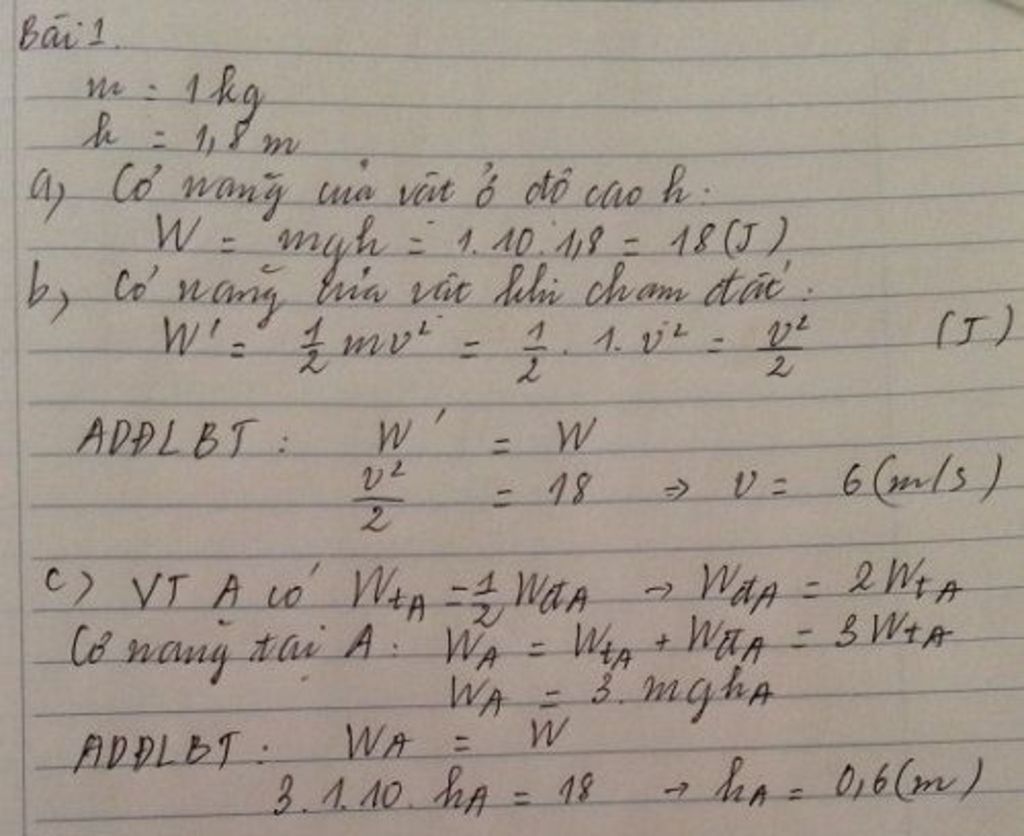 Bài 1.
m = 1kg
h = 1,8 m
a) Cơ năng của vật ở độ cao h:
W = mgh = 1.10.1,8 = 18(J)
b) Cơ năng của vật khi chạm đất:
W' = 1/2 mv² = 1/2 . 1. v² = v²/2 (J)
ADĐLBT: W' = W
v²/2 = 18 → v = 6(m/s)
c) VT A có WtA = 1/2 WđA → WđA = 2WtA
Cơ năng tại A: WA = WtA + WđA = 3WtA
WA = 3.mghA
ADĐLBT: WA = W
3.1.10.hA = 18 → hA = 0,6(m)